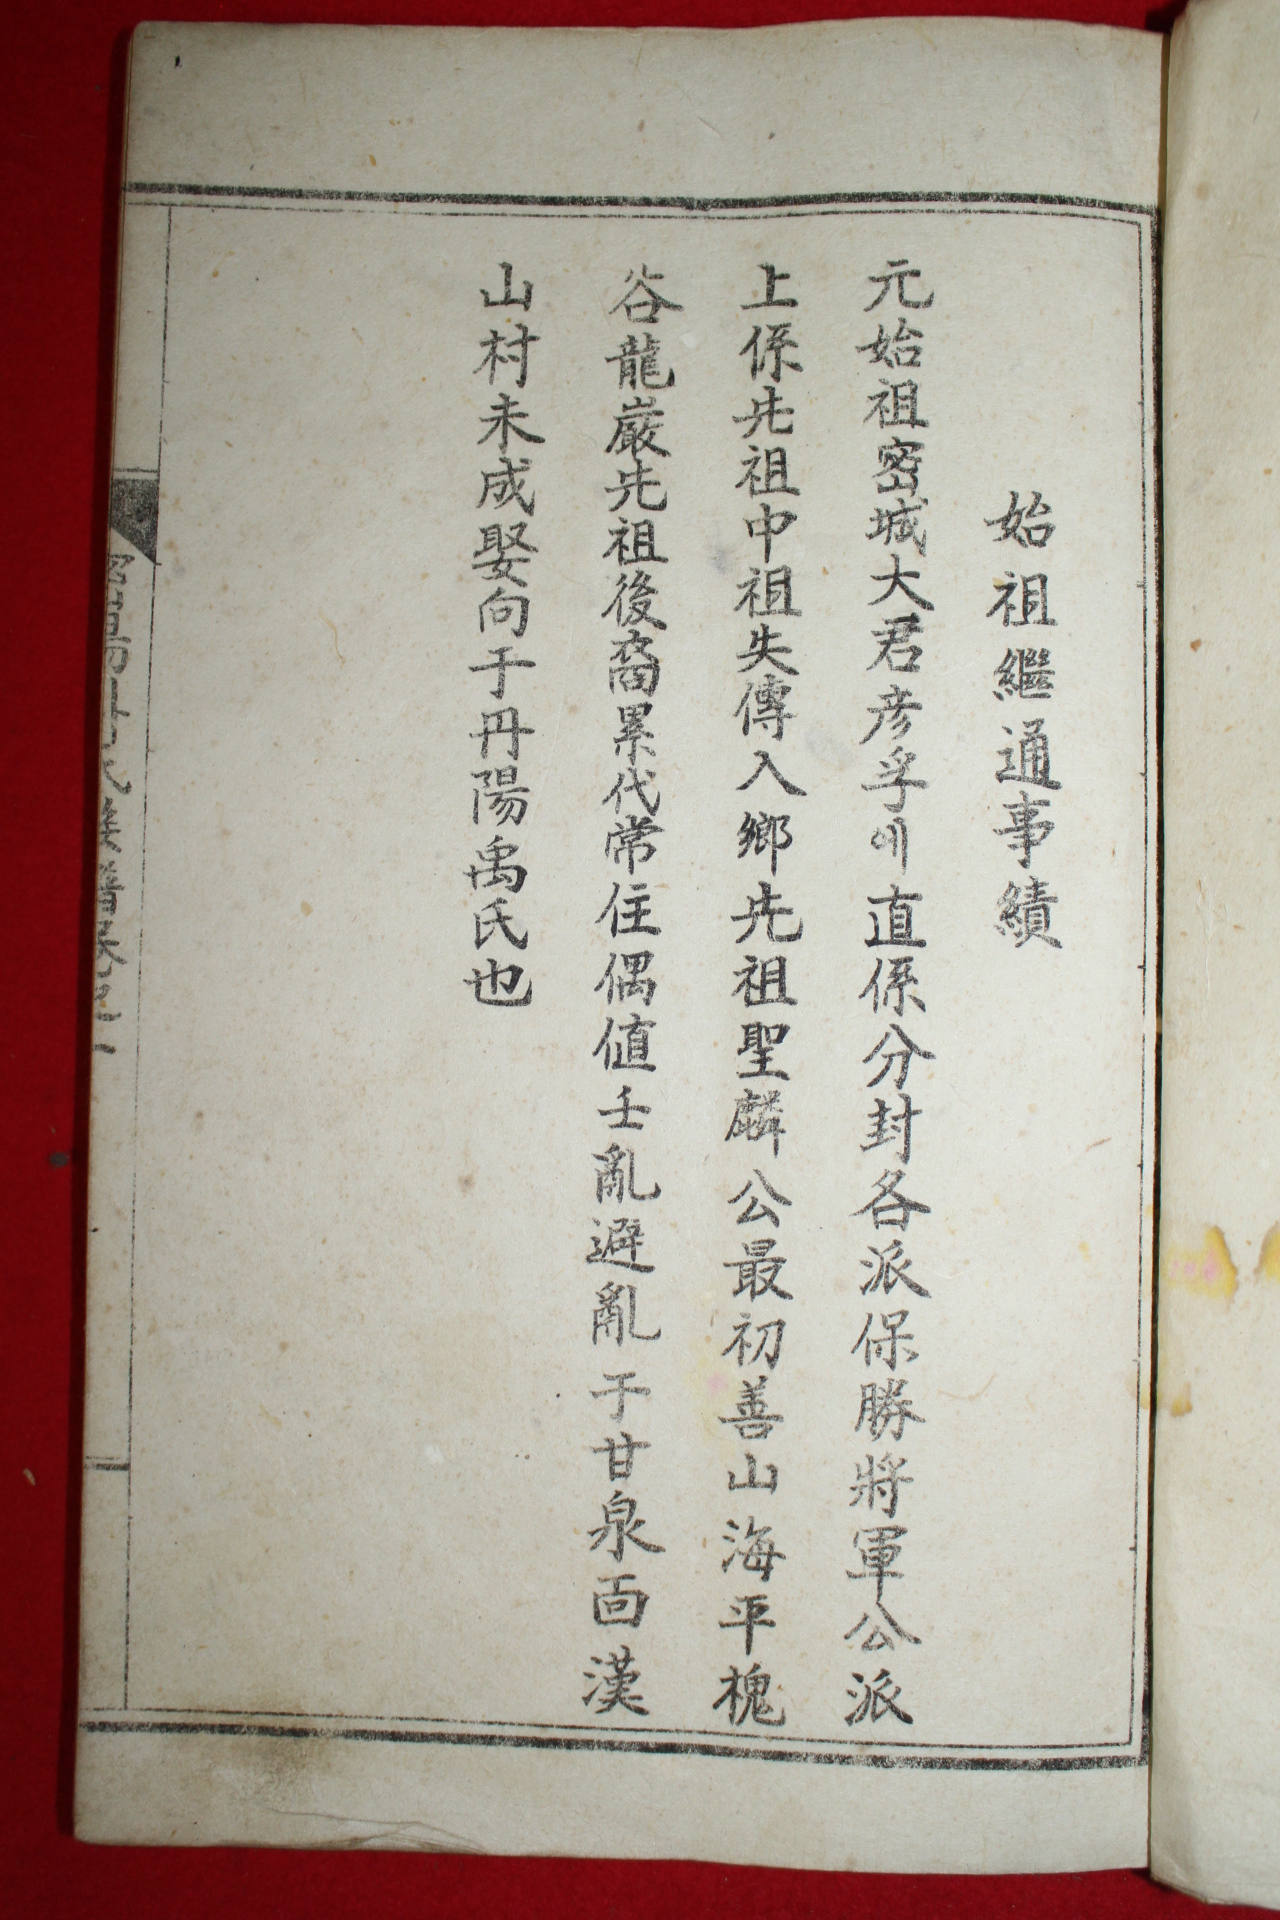 始祖繼通事績
元始祖密城大君彦孚에直係分封各派保勝將軍公派
上係先祖中祖失傳入鄉先祖聖麟公最初善山海平槐
谷龍巖先祖後裔累代常住偶値壬亂避亂于甘泉面漢
山村未成娶向于丹陽禹氏也